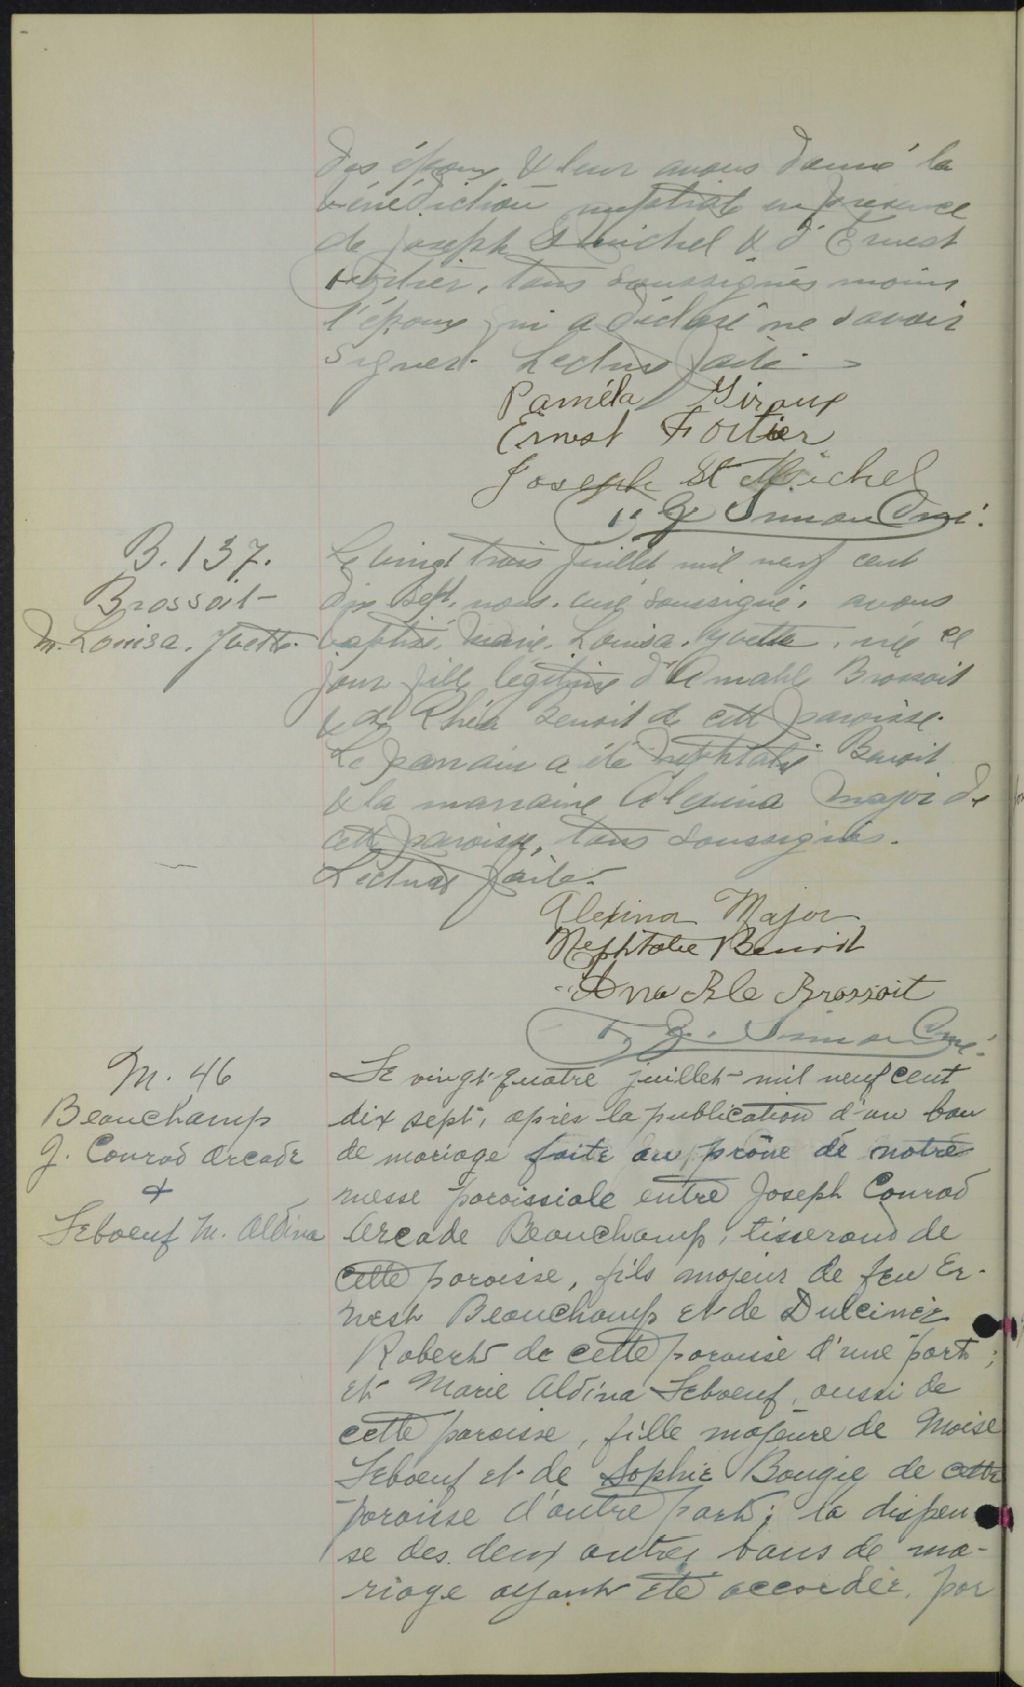 des époux & leur avons donné la
bénédiction nuptiale en présence
de Joseph St Michel & d'Ernest
Fortier, tous soussignés moins
l'époux qui a déclaré ne savoir
signer. Lecture faite.
Paméla Giroux
Ernest Fortier
Joseph St Michel
Curé.
B. 137.
Brossoit
M. Louisa. Yvette.
Le vingt trois juillet mil neuf cent
dix sept, nous, curé soussigné, avons
baptisé, Marie. Louisa. Yvette, née ce
jour fille légitime d'Amable Brossoit
& de Rhéa Benoit de cette paroisse.
Le parrain a été Nephtalie Benoit
& la marraine Alexina Major de
cette paroisse, tous soussignés.
Lecture faite.
Alexina Major
Nephtalie Benoit
Amable Brossoit
Curé.
M. 46
Beauchamp
J. Conrad Arcade
&
Leboeuf M. Aldina
Le vingt-quatre juillet mil neuf cent
dix sept, après la publication d'un ban
de mariage faite au prône de notre
messe paroissiale entre Joseph Conrad
Arcade Beauchamp, tisserand de
cette paroisse, fils majeur de feu Er-
nest Beauchamp et de Dulcinée
Robert de cette paroisse d'une part;
et Marie Aldina Leboeuf, aussi de
cette paroisse, fille majeure de Moïse
Leboeuf et de Sophie Bougie de cette
paroisse d'autre part; la dispen
se des deux autres bans de ma-
riage ayant été accordée, par